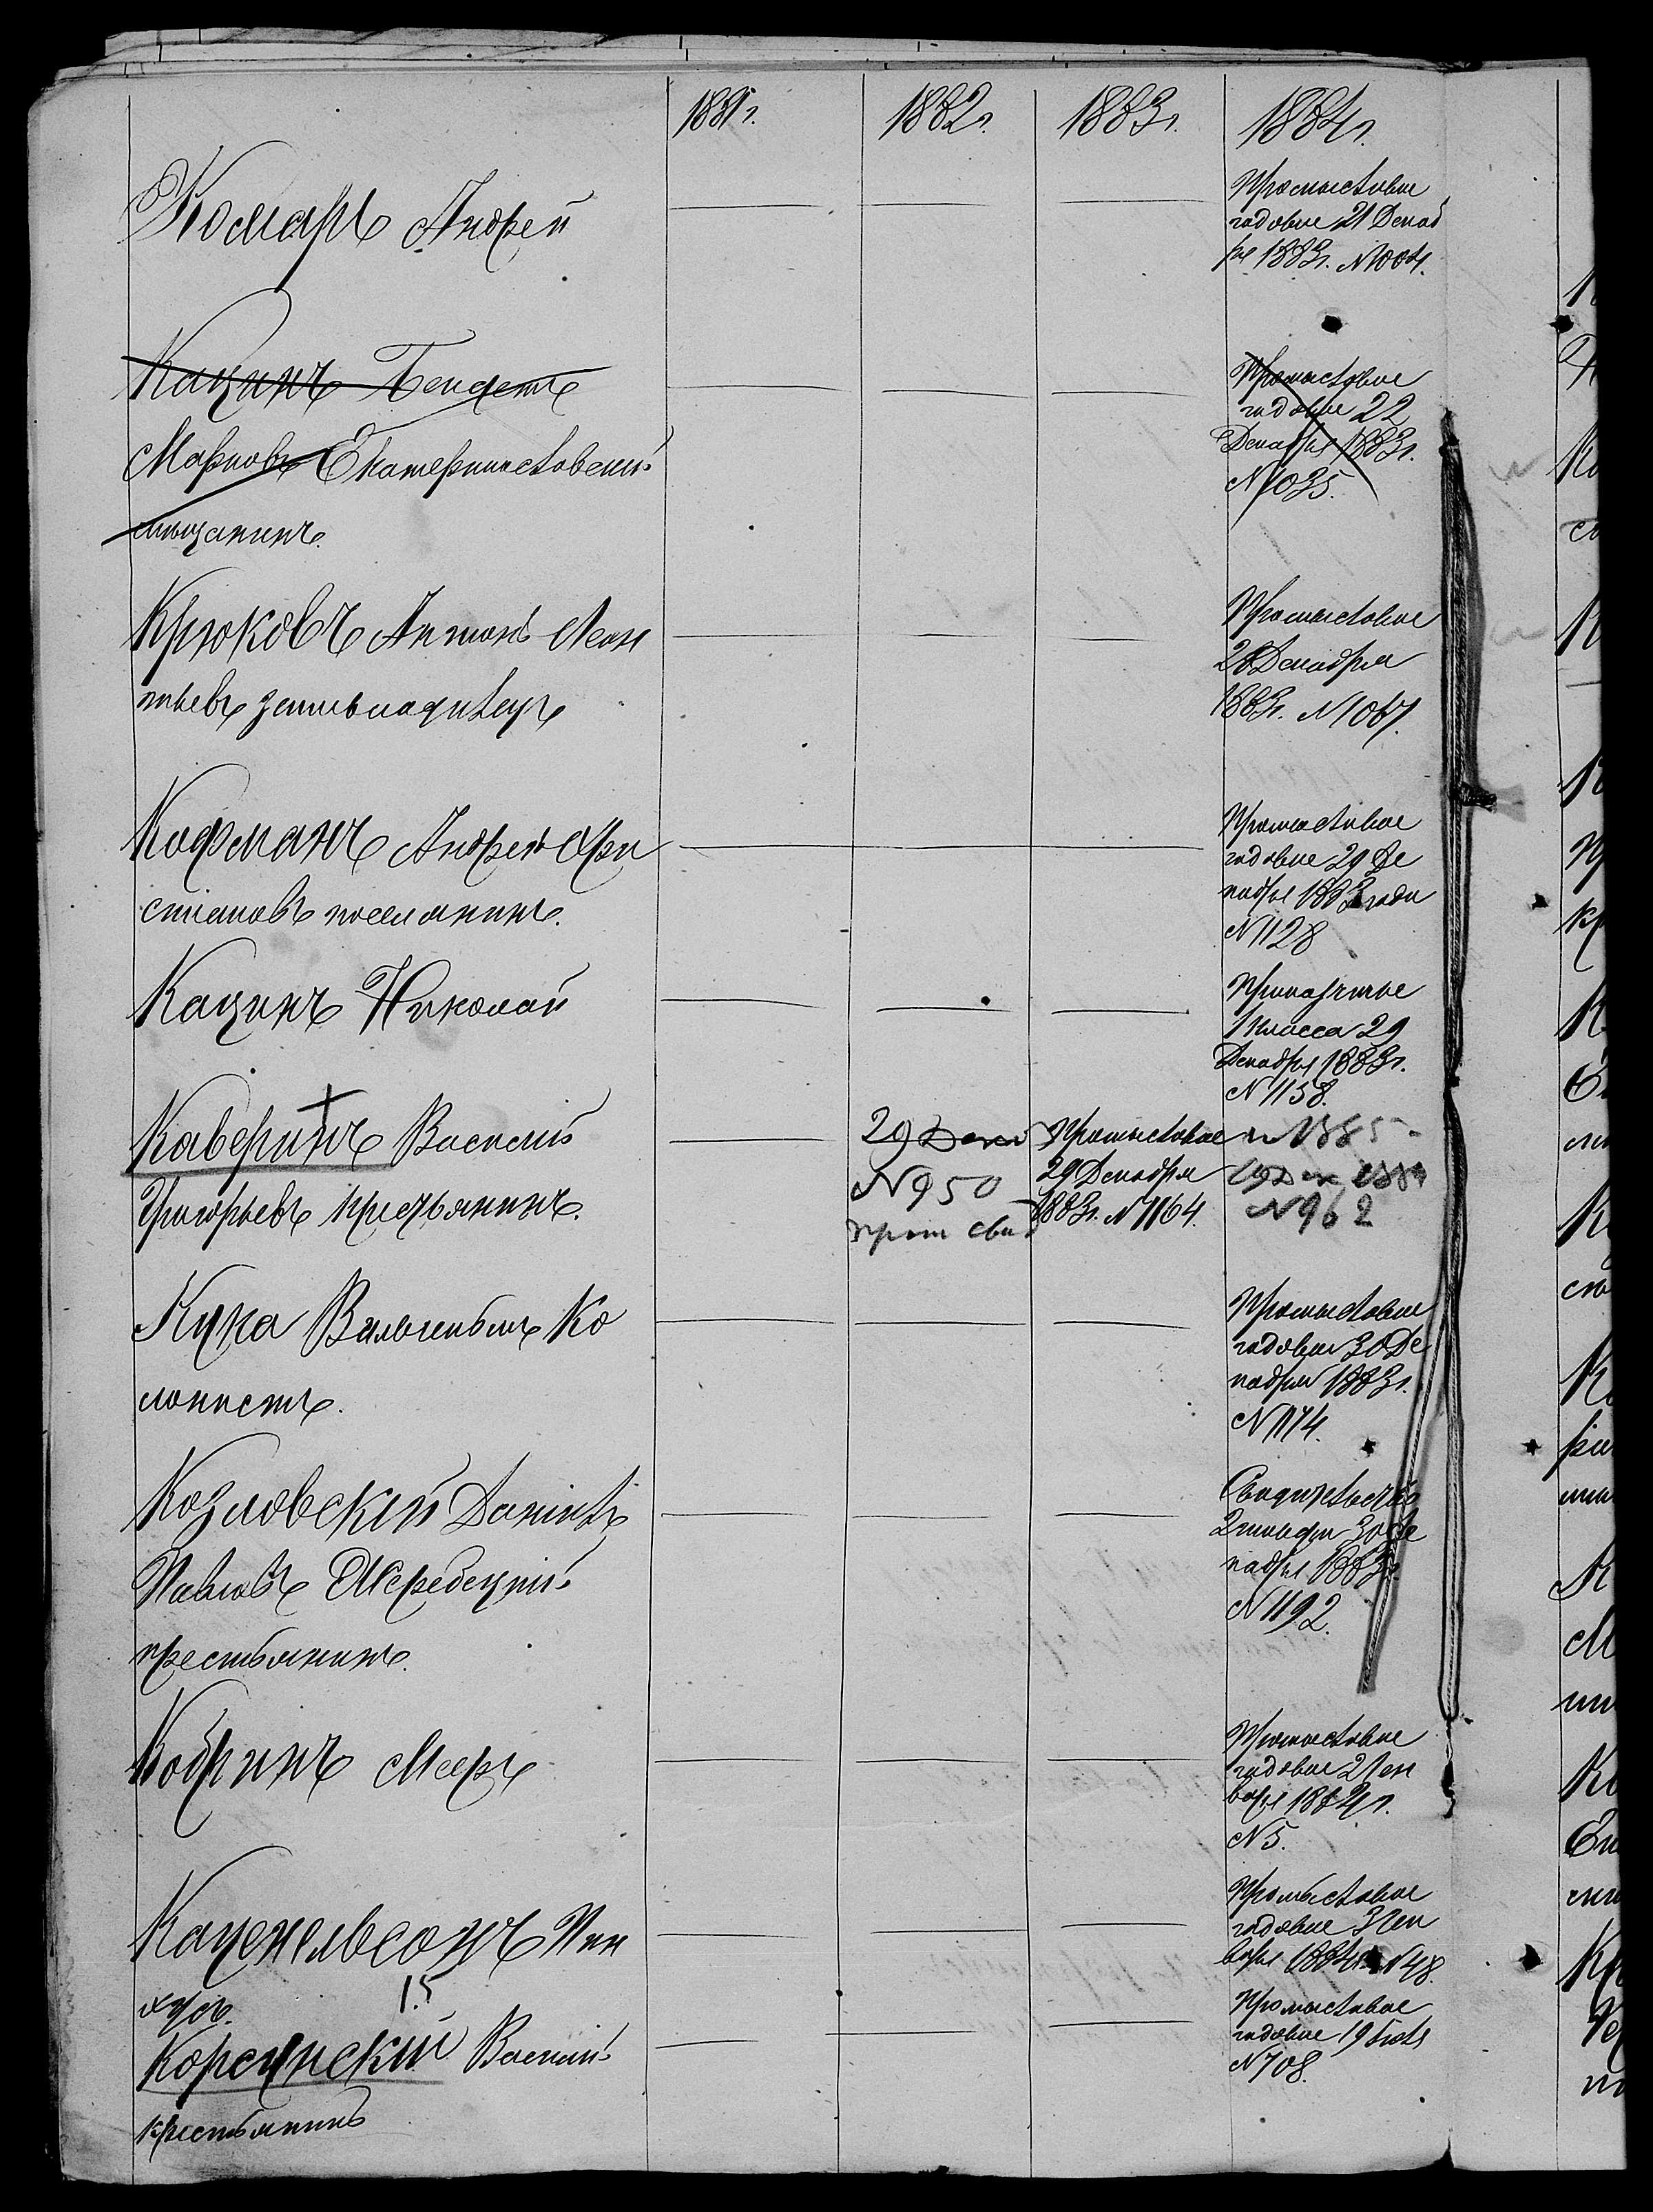 1881г. 1882г. 1883г. 1884г.
Комаръ Андрей
Промысловое
годовое 21 Декаб
ря 1883г. N1004.
Кацинъ Бендетъ
Марковъ Екатеринославскій
мѣщанинъ.
Промысловое
годовое 22
Декабря 1883г.
N1035.
Крюковъ Антонъ Леон
тьевъ землевладѣлецъ
Промысловое
28 Декабря
1883г. N1067.
Кофманъ Андрей Хри
стіановъ поселянинъ.
Промысловое
годовое 29 Де
кабря 1883 года
N1128
Кацинъ Николай
Приказчичье
1 класса 29
Декабря 1883г.
N1158.
Каверинъ Василій
Григорьевъ крестьянинъ.
29 Дек
N950
пром свид
Промысловое
29 Декабря
1883г. N1164.
н 1885
19 Дек 1884
N962
Кука Вильгельмъ Ко
лонистъ.
Промысловое
годовое 30 Де
кабря 1883г.
N1174.
Козловскій Даніилъ
Павловъ Жеребецкій
крестьянинъ.
Свидѣтельство
2 гильдіи 30 Де
кабря 1883г.
N1192.
Кобринъ Мееръ
Промысловое
годовое 2 Ген
варя 1884г.
N5.
Каценельсонъ Пин
хусъ.
Промысловое
годовое 3 Ген
варя 1884г. N48.
15
Корсунскій Василій
крестьянинъ
Промысловое
годовое 19 Іюля
N708.